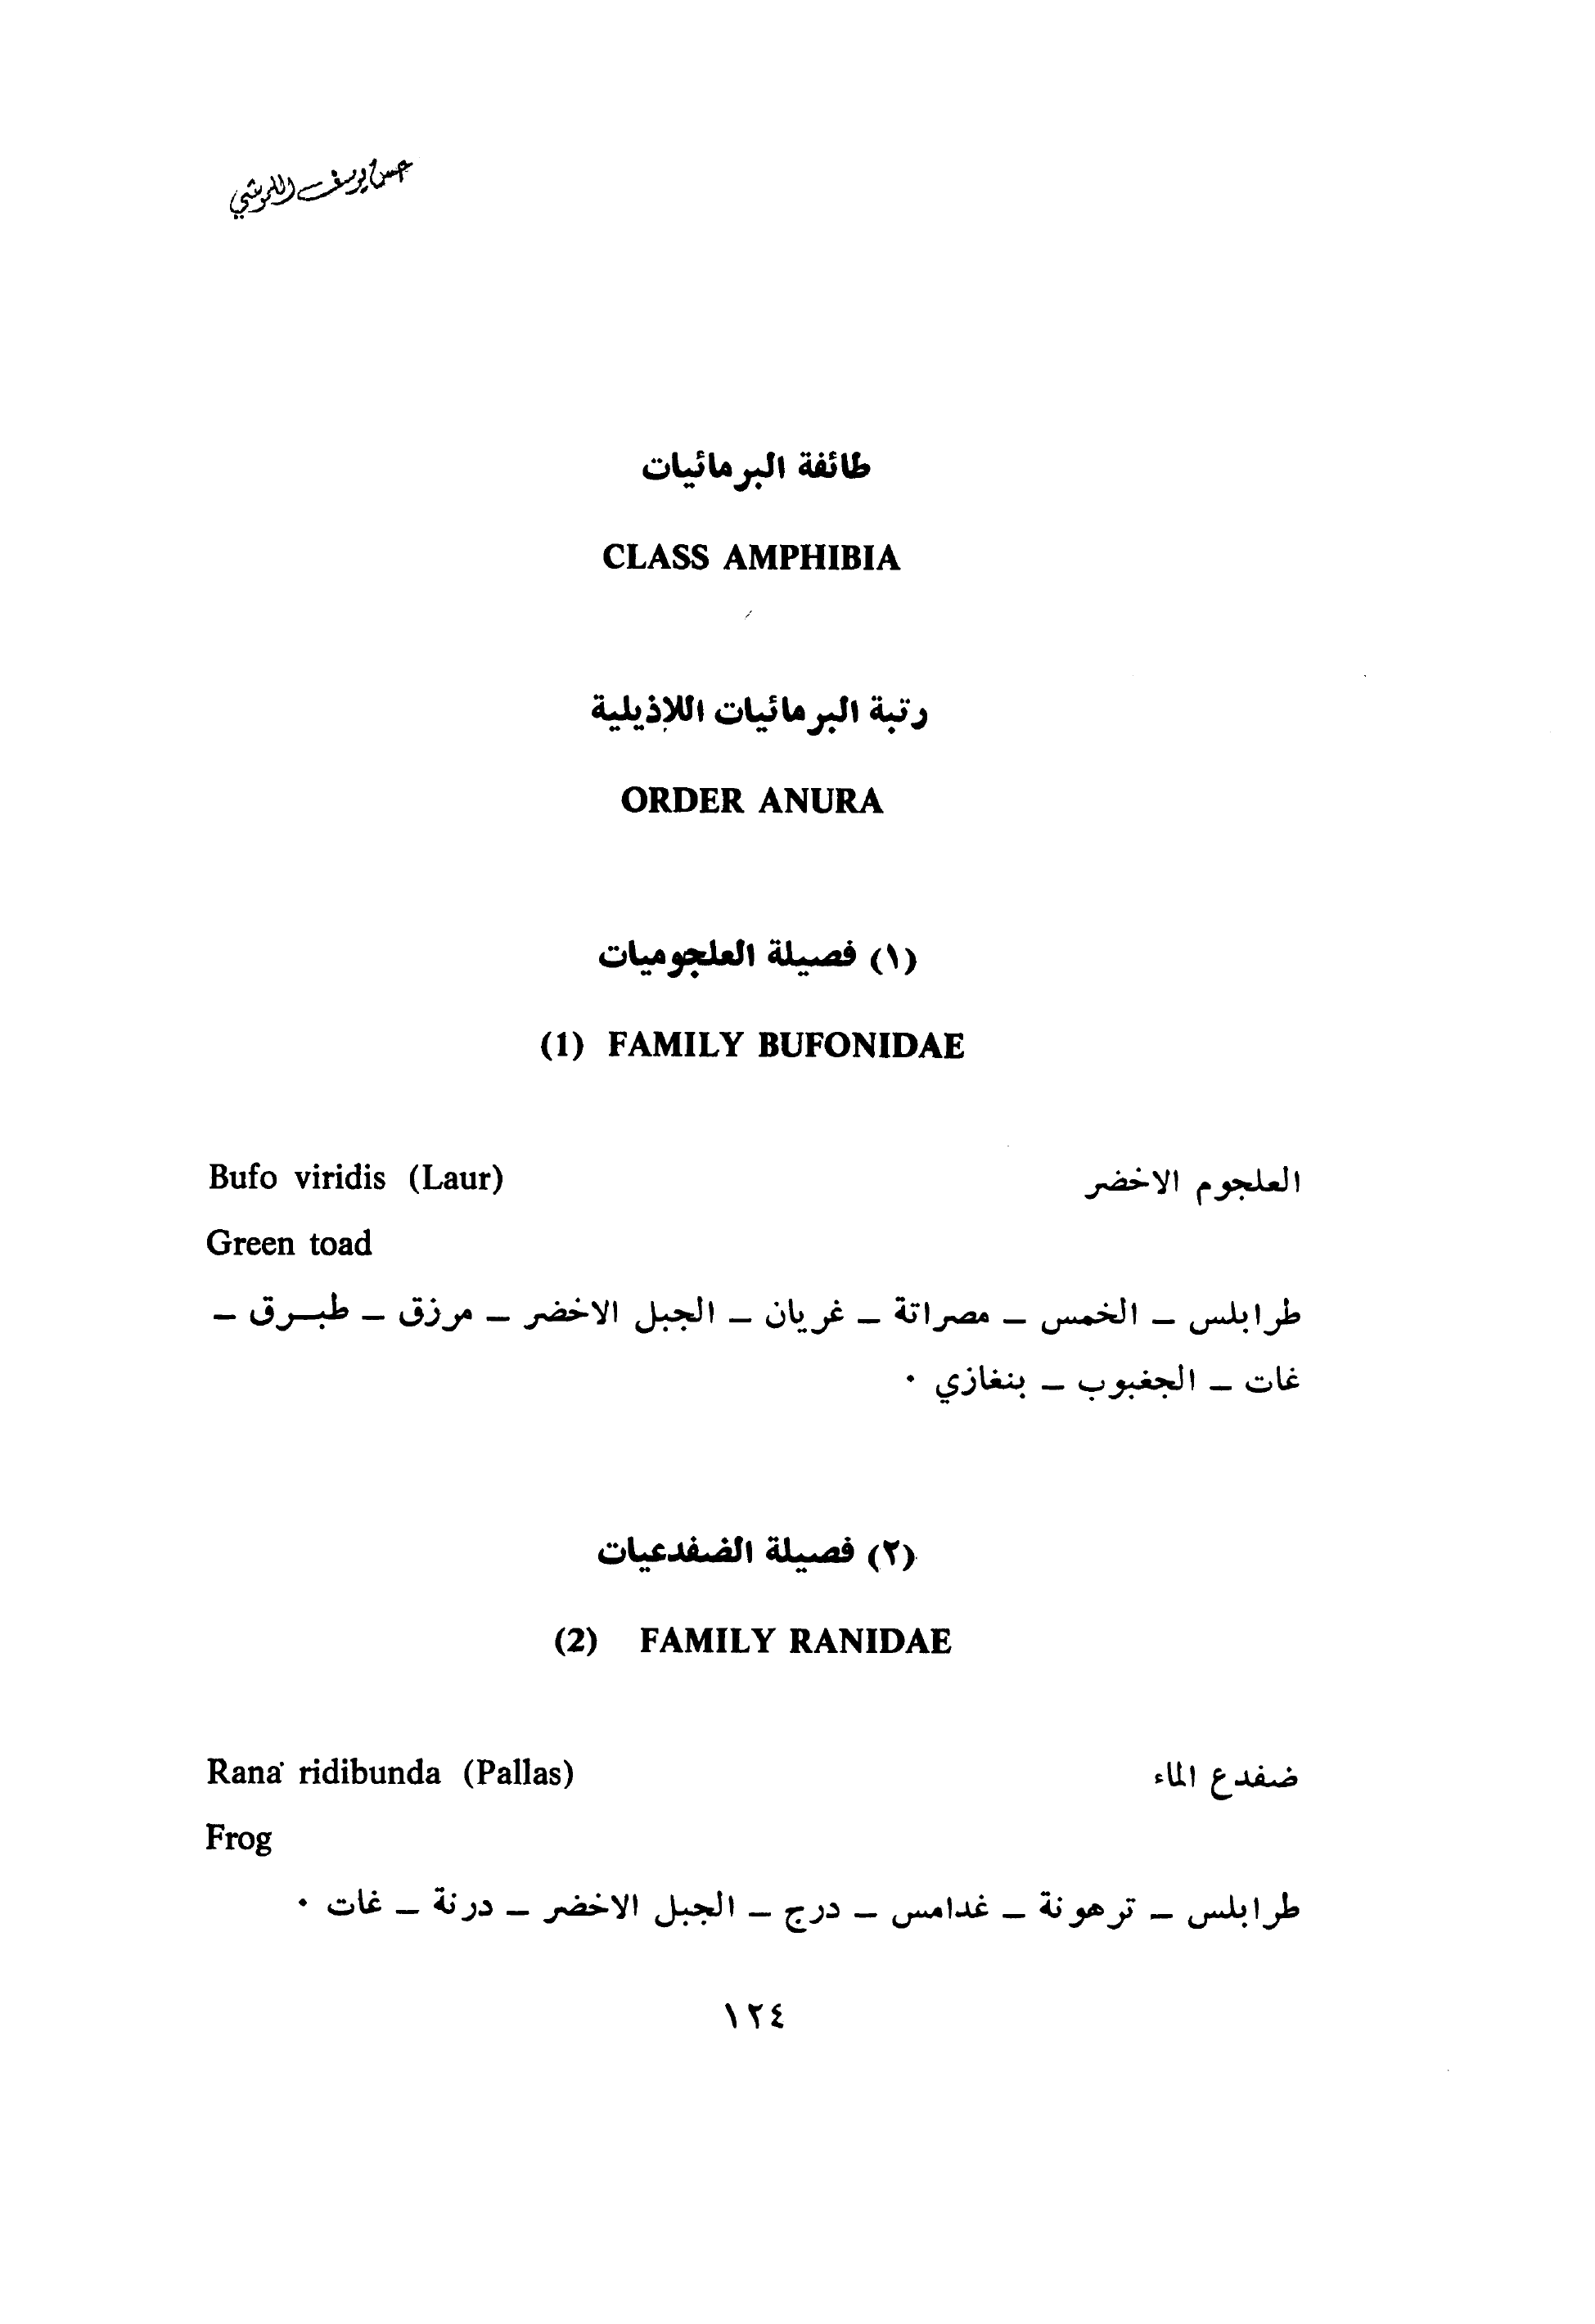 حسن يوسف اللموشي
طائفة البرمائيات
CLASS AMPHIBIA
رتبة البرمائيات اللاذيلية
ORDER ANURA
(١) فصيلة العلجوميات
(1) FAMILY BUFONIDAE
Bufo viridis (Laur) العلجوم الاخضر
Green toad
طرابلس ــ الخمس ــ مصراتة ــ غريان ــ الجبل الاخضر ــ مرزق ــ طبــرق ــ
غات ــ الجغبوب ــ بنغازي ٠
(٢) فصيلة الضفدعيات
(2) FAMILY RANIDAE
Rana ridibunda (Pallas) ضفدع الماء
Frog
طرابلس ــ ترهونة ــ غدامس ــ درج ــ الجبل الاخضر ــ درنة ــ غات ٠
١٢٤